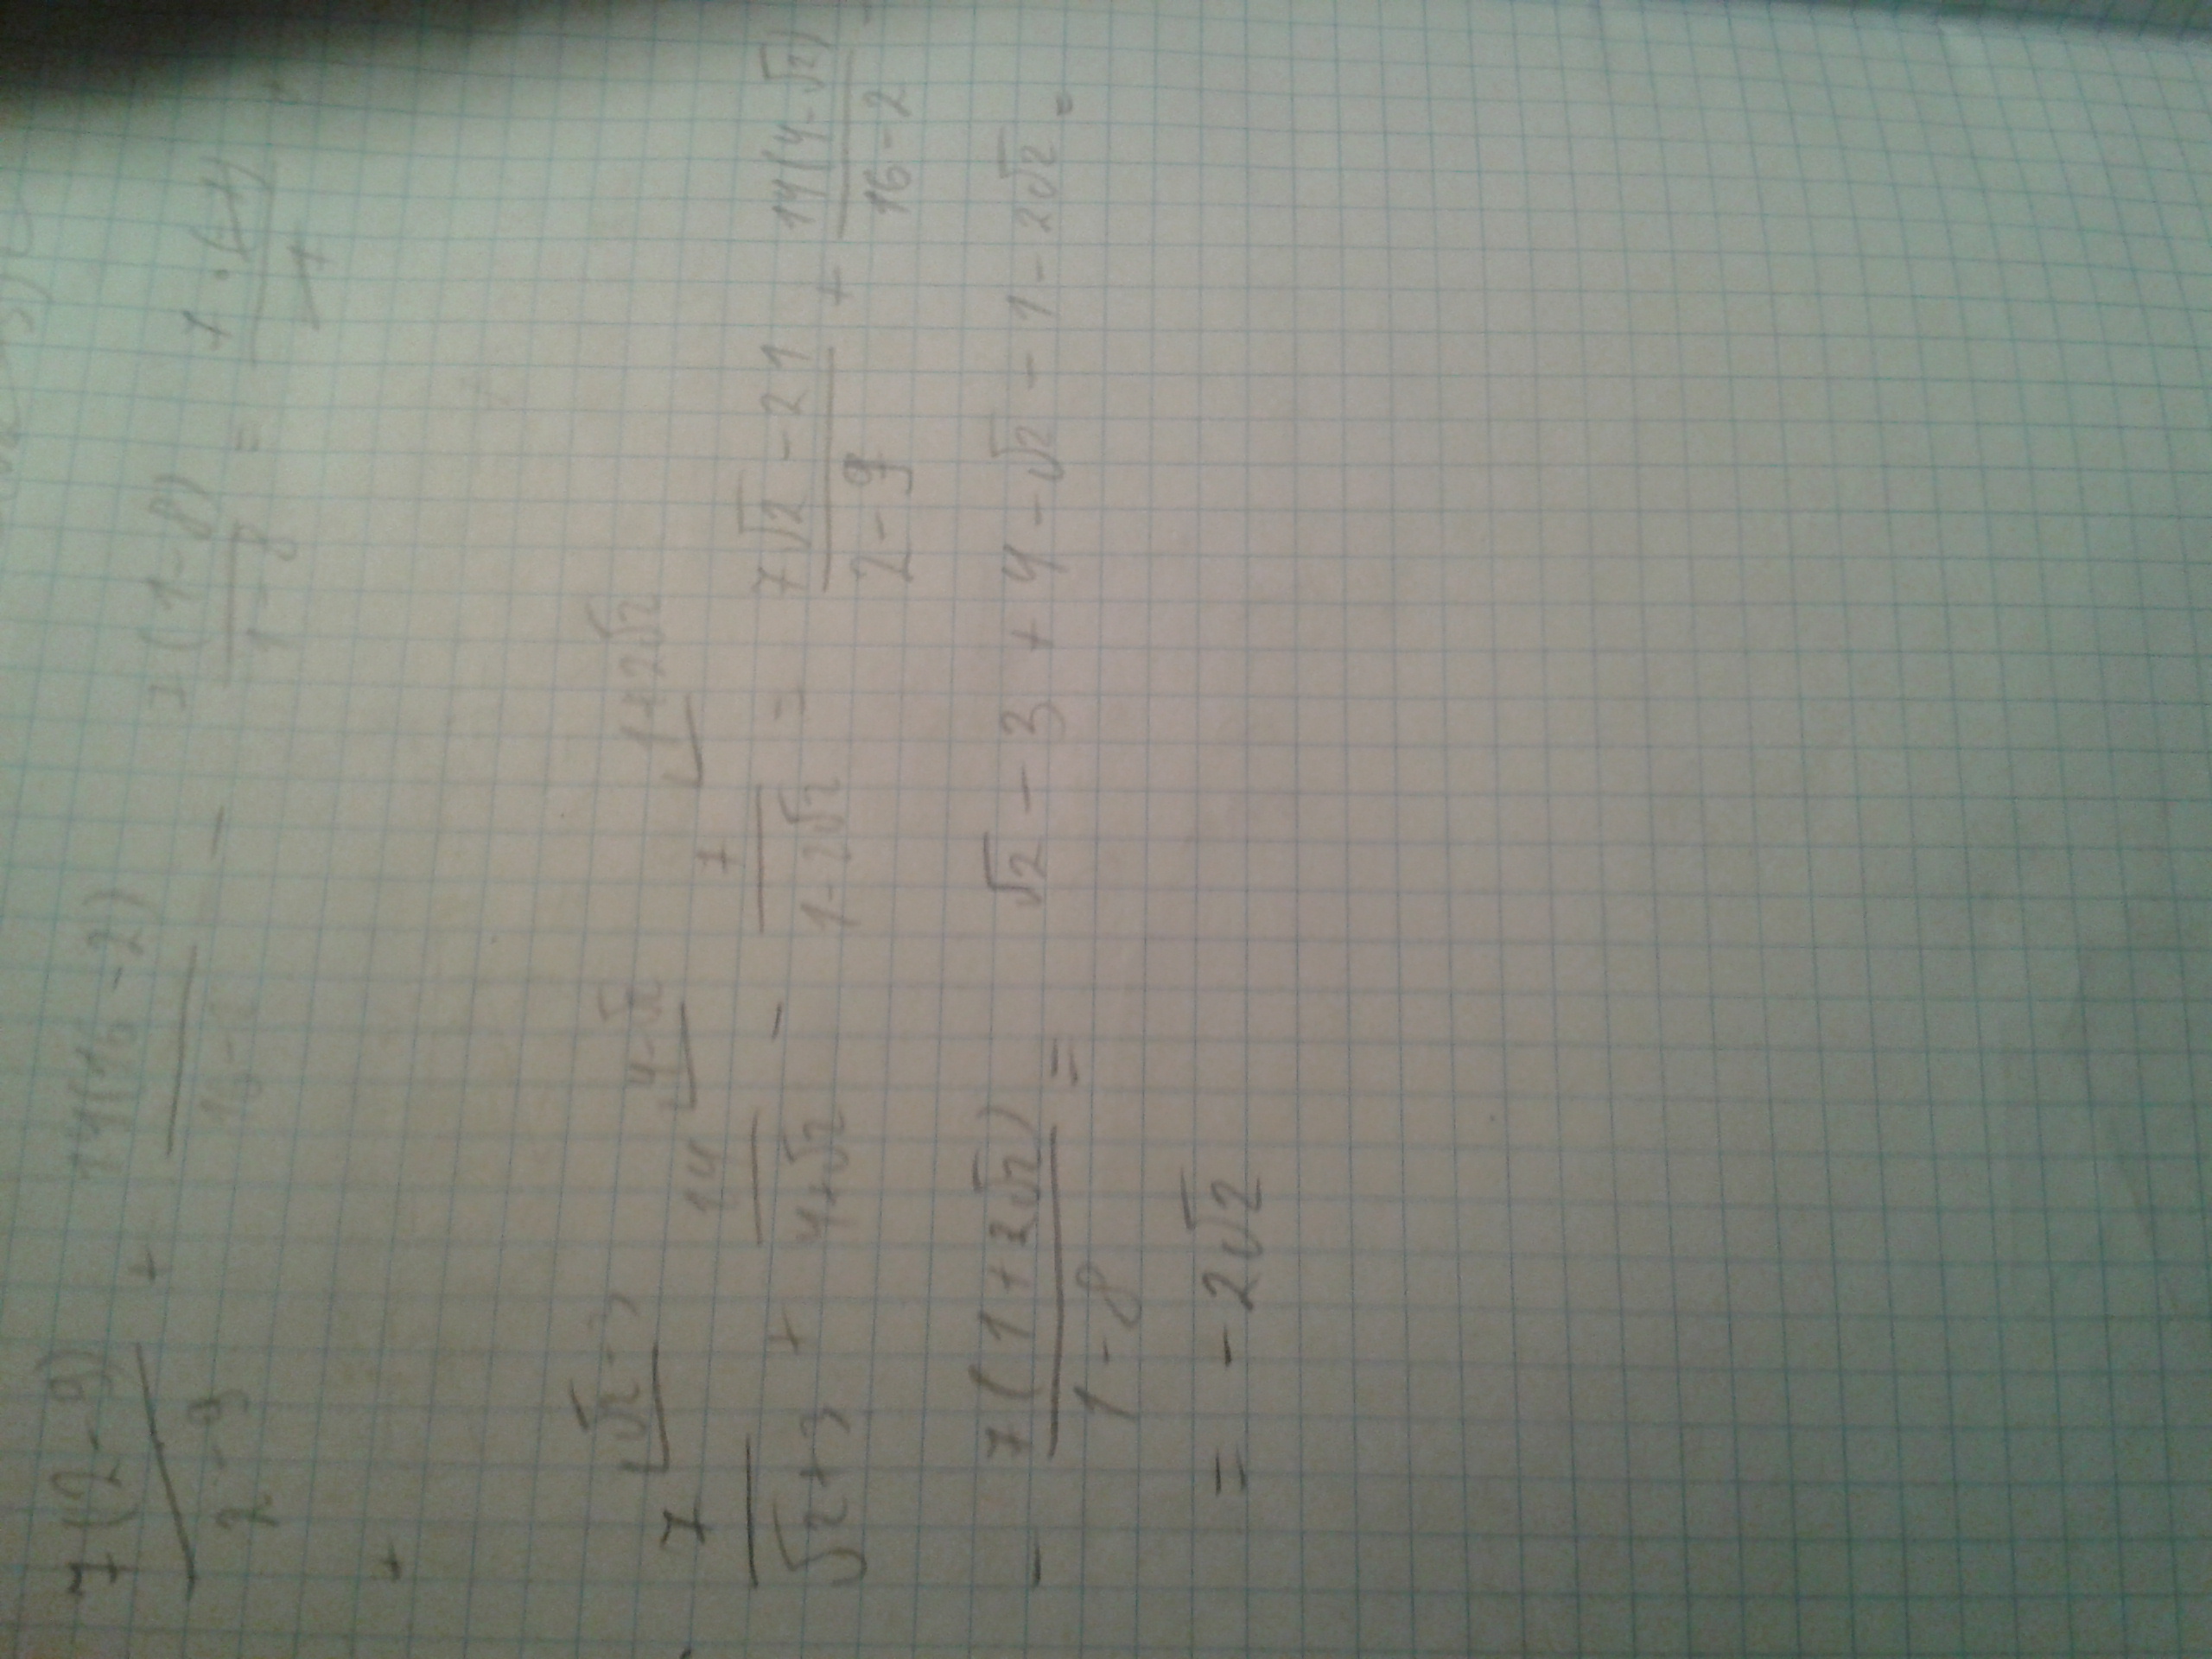 7(2-9)/2-9 + 14(16-2)/16- - 7(1-8)/1-8 =
+
7/√2+3 ⌊√2-3 + 14/4+√2 ⌊4-√2 - 7/1-2√2 ⌊1+2√2 = 7√2-21/2-9 + 14(4-√2)/16-2 -
- 7(1+2√2)/1-8 = √2 - 3 + 4 - √2 - 1 - 2√2 =
= -2√2